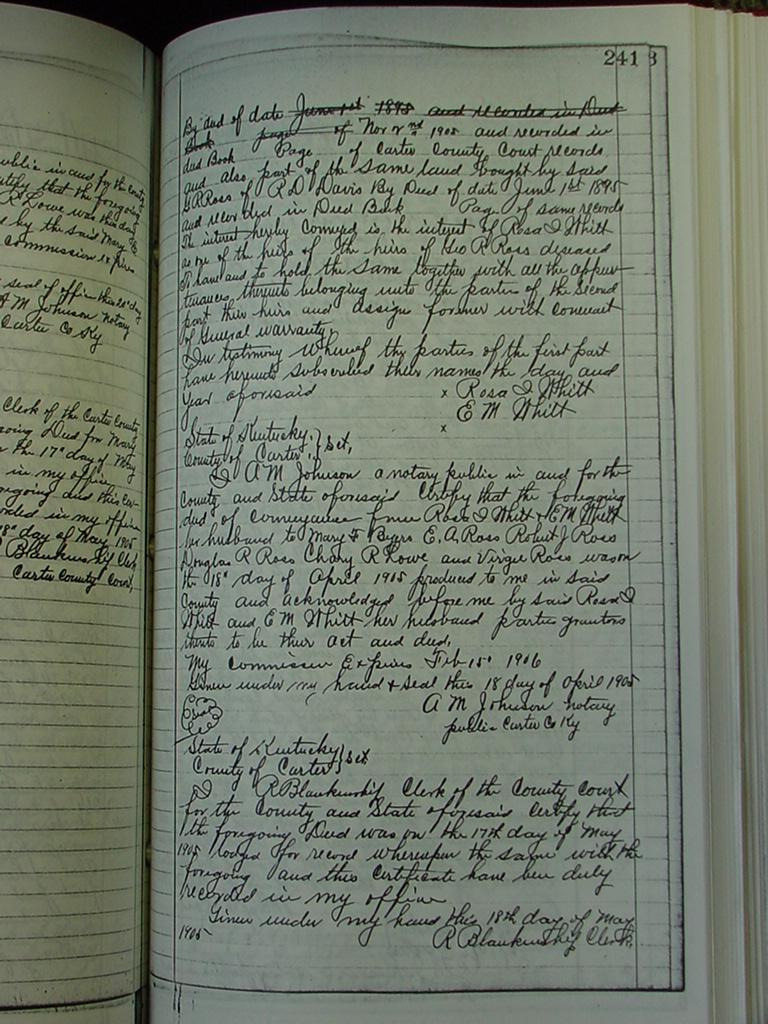 ublic in and for the County
rtify that the foregoing
R Lowe was this day
d by the said Mary E
commission Expires
seal of office this 18 day
A M Johnson notary
Carter Co Ky
Clerk of the Carter County
going Deed from Mary
the 17" day of May
in my office
regoing and this Cer
orded in my office
18" day of May 1905
Blankinship Clk
Carter County Court,
241
By deed of date June 1st 1895 and recorded in Deed
Book page of Nov 2nd 1905 and recorded in
deed Book Page of Carter County Court records
and also part of the same land bought by said
G R Ross of R D Davis By Deed of date June 1st 1895
and recorded in Deed Book Page of same records
The interest hereby conveyed is the interest of Rosa I Whitt
as one of the heirs of the heirs of Geo R Ross deseased
To have and to hold the same together with all the appur
tenances thereunto belonging unto the parties of the second
part their heirs and assigns forever with convenant
of General warranty.
In testimony Whereof the parties of the first part
have hereunto subscribed their names the day and
year aforesaid x Rosa I Whitt
E M Whitt
x
State of Kentucky
County of Carter } Sct,
I A M Johnson a notary public in and for the
County and State aforesaid Certify that the foregoing
deed of conveyance from Rosa I Whitt & E M Whitt
her husband to Mary F Byers E. A. Ross Robert J Ross
Douglas R Ross R Lowe and Virgie Ross was on
the 18" day of April 1905 produced to me in said
County and acknowledged before me by said Rosa I
Whitt and E M Whitt her husband parties grantors
thereto to be their act and deed,
My Commission Expires Feb 15" 1906
Given under my hand & seal this 18 day of April 1905
A M Johnson notary
public Carter Co Ky
State of Kentucky
County of Carter } Sct
I R Blankinship Clerk of the County Court
for the County and State aforesaid Certify that
the foregoing Deed was on the 17th day of May
1905 lodged for record whereupon the same with the
foregoing and this Certificate have been duly
recorded in my office
Given under my hand this 18th day of May
1905 R Blankinship Clerk,